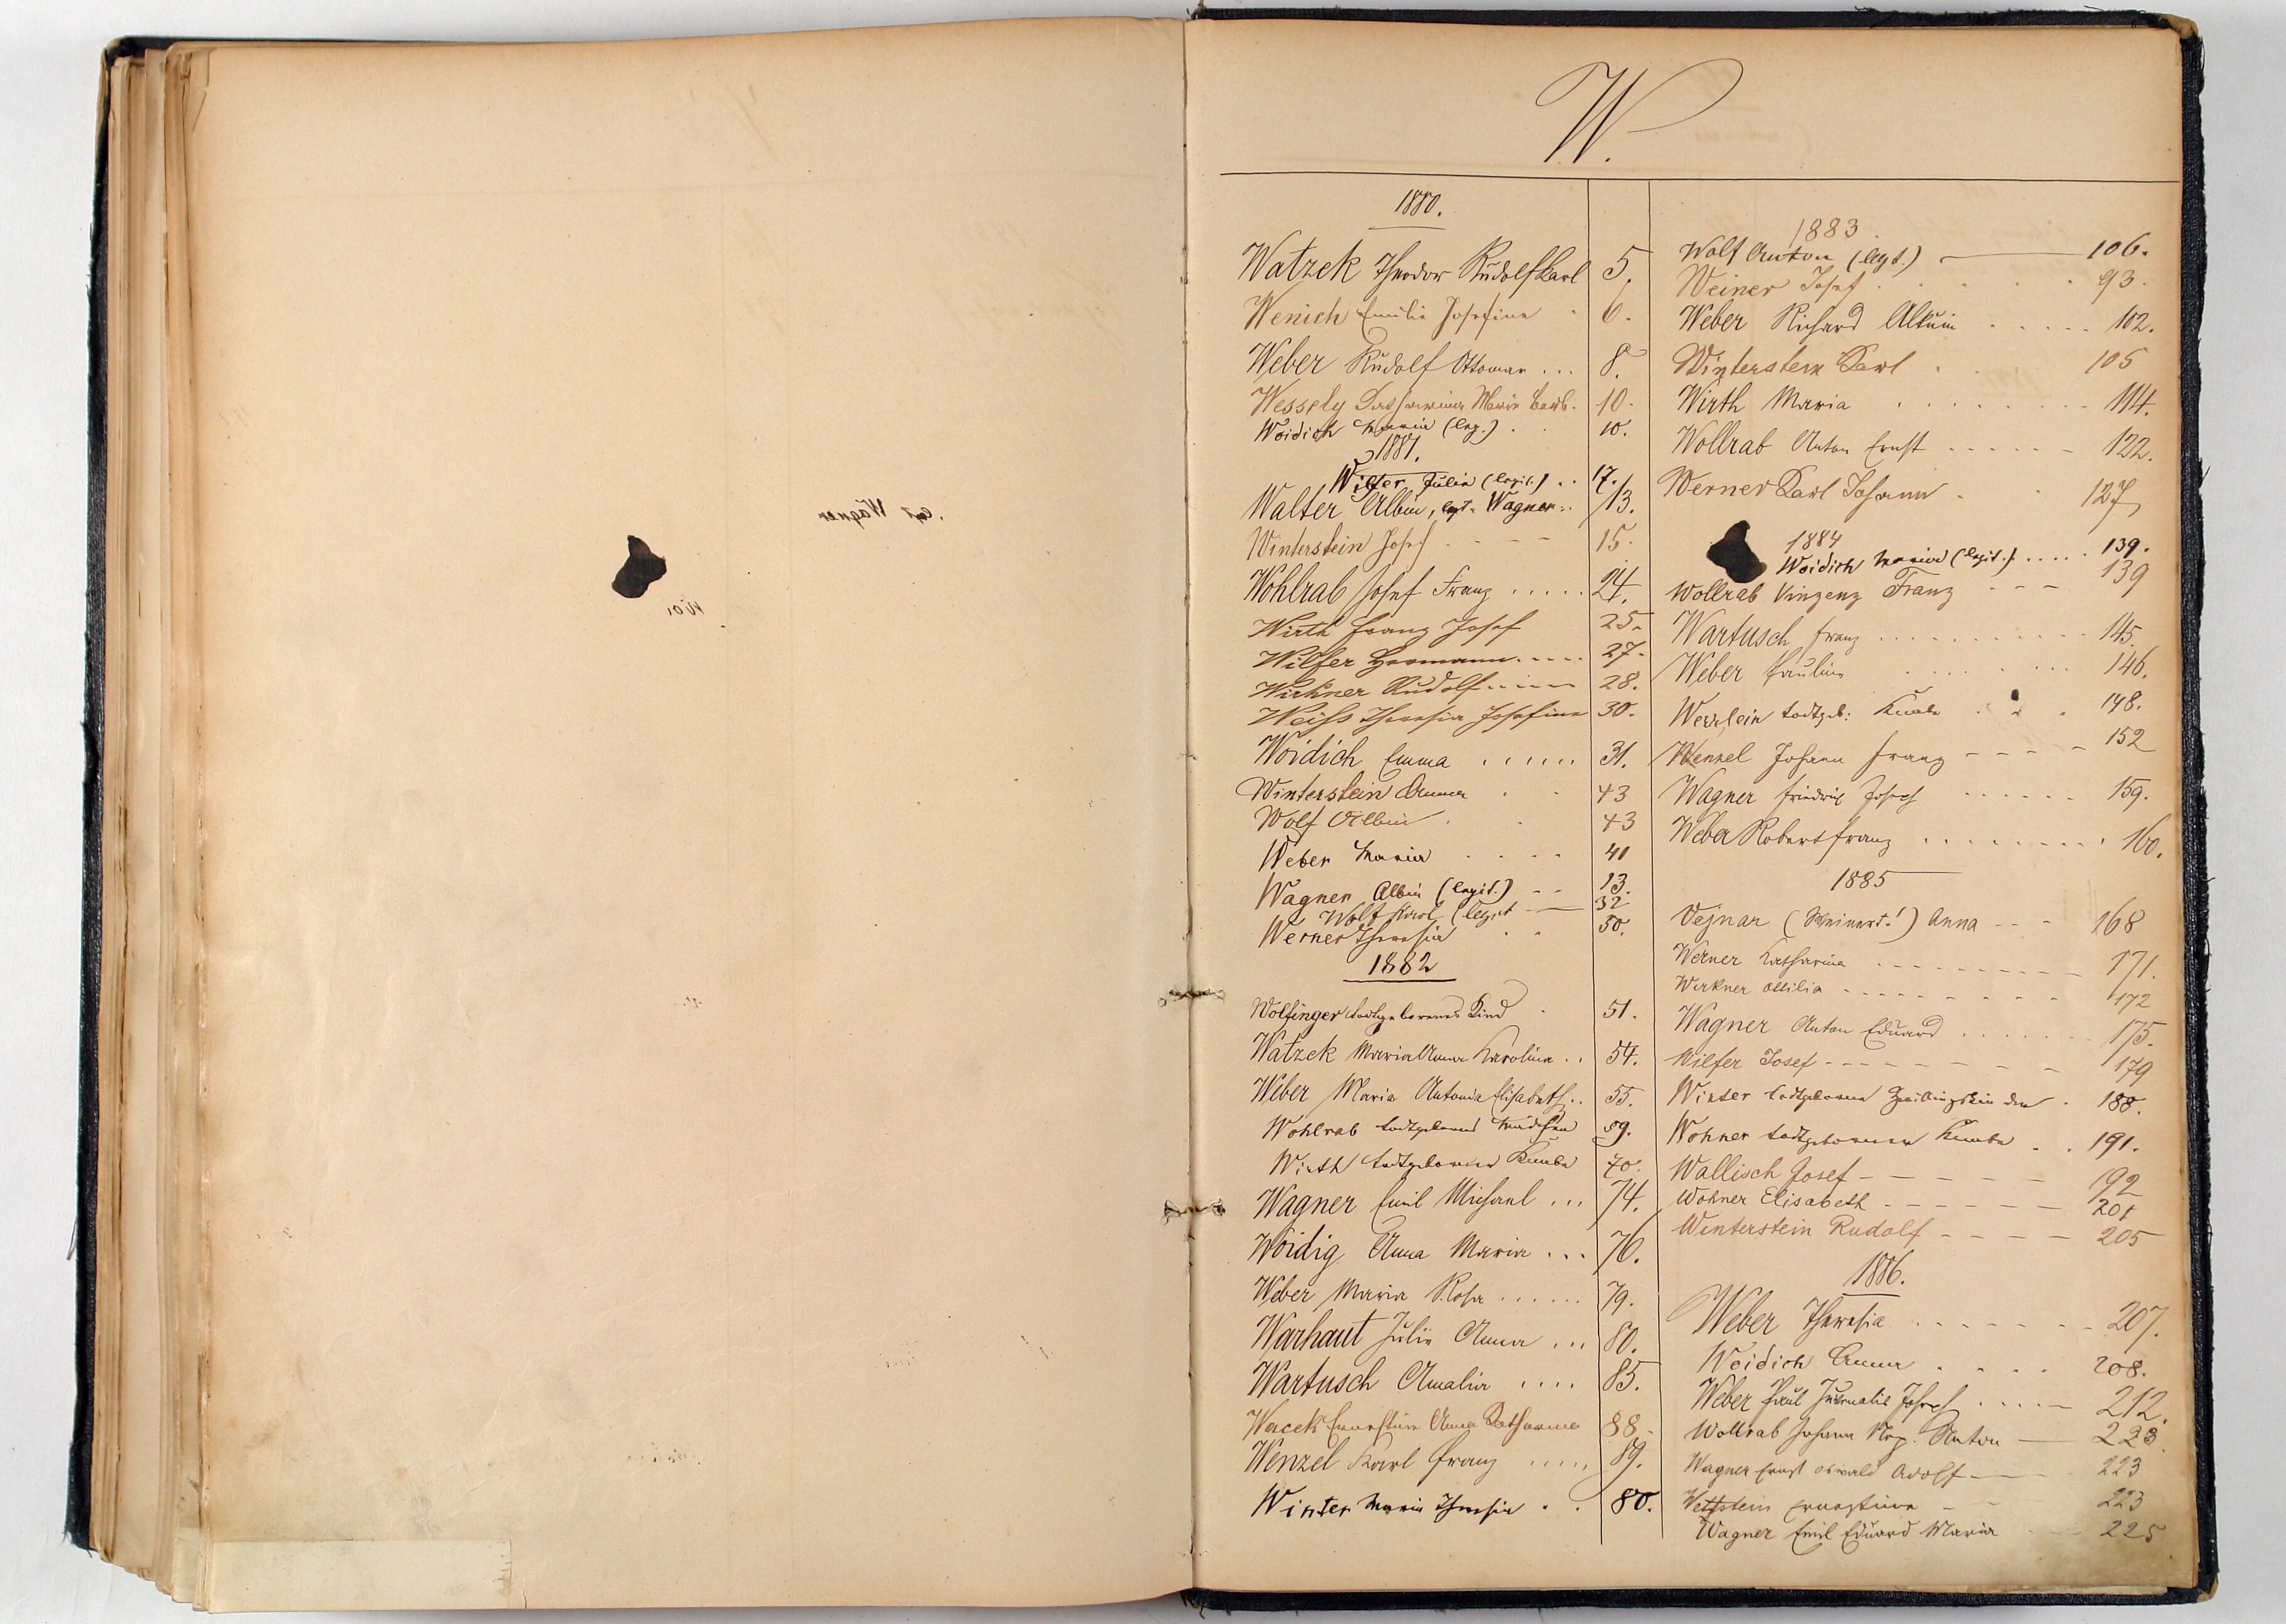 W.
1880.
Watzek Theodor Rudolf Karl 5.
Wenich Emilie Josefine 6.
Weber Rudolf Ottomar ... 8.
Wessely Katharina Maria Barb. 10.
Woidich Maria (leg.) . . 10.
1881.
Wilfer Julia (legit.) .. 17.
Walter Albin, legt. Wagner .. 13.
Winterstein Josef - - - - 15.
Wohlrab Josef Franz ..... 24.
Wirth Franz Josef 25.
Wilfer Hermann ..... 27.
Wirkner Rudolf ..... 28.
Weiß Theresia Josefine 30.
Woidich Emma ...... 31.
Winterstein Anna . . 43
Wolf Albin . . 43
Weber Maria . . . . 41
Wagner Albin (legit.) - - 13.
Wolf Karl (legit — 32
Werner Theresia . . 50.
1882
Wolfinger todtgeborenes Kind . 51.
Watzek Maria Anna Karolina .. 54.
Weber Maria Antonia Elisabeth .. 55.
Wohlrab todtgeborenes Mädchen 59.
Wirth todtgeborener Knabe 70.
Wagner Emil Michael ... 74.
Woidig Anna Maria ... 76.
Weber Maria Rosa ...... 79.
Warhaut Julie Anna ... 80.
Wartusch Amalia .... 85.
Wacek Ernestine Anna Katharina 88.
Wenzel Karl Franz ..... 89.
Winter Maria Theresia . . 80.
1883.
Wolf Anton (legt.) — 106.
Weiner Josef . . . . . 93.
Weber Richard Alkuin ..... 102.
Winterstein Karl . . 105
Wirth Maria ........ 114.
Wollrab Anton Ernst ------ 122.
Werner Karl Johann . . 127
1884
Woidich Maria (legit.) ..... 139.
Wollrab Vinzenz Franz - - - 139
Wartusch Franz ............ 145.
Weber Paulina ........ 146.
todtgeb. Knabe . . . 148.
Wenzel Johann Franz - - - - 152
Wagner Friedrich Josef ------ 159.
Weber Robert Franz ........ 160.
1885
Vejnar (Weinert!) Anna - - - 168
Werner Katharina ---------- 171.
Wirkner Ottilia --------- 172
Wagner Anton Eduard ....... 175.
Wilfer Josef ------- 179
Winter todtgeborene . 188.
Wohner todtgeborener Knabe . . 191.
Wallisch Josef ------ 192
Wohner Elisabeth ------ 201
Winterstein Rudolf ----- 205
1886.
Weber Theresia ........ 207.
Woidich Anna . . . . 208.
Weber Paul Josef ..... 212.
Wollrab Johann Nep. Anton — 223.
Wagner Ernst Oswald Adolf — 223
Wettstein Ernestine — 223
Wagner Emil Eduard Maria - - - 225